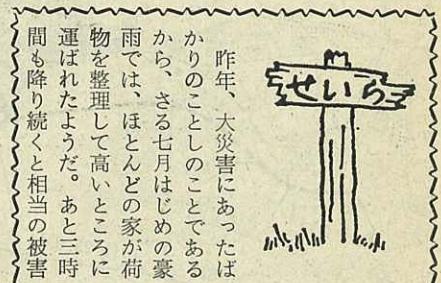 せいら
昨年、大災害にあったば
かりのことしのことである
から、さる七月はじめの豪
雨では、ほとんどの家が荷
物を整理して高いところに
運ばれたようだ。あと三時
間も降り続くと相当の被害